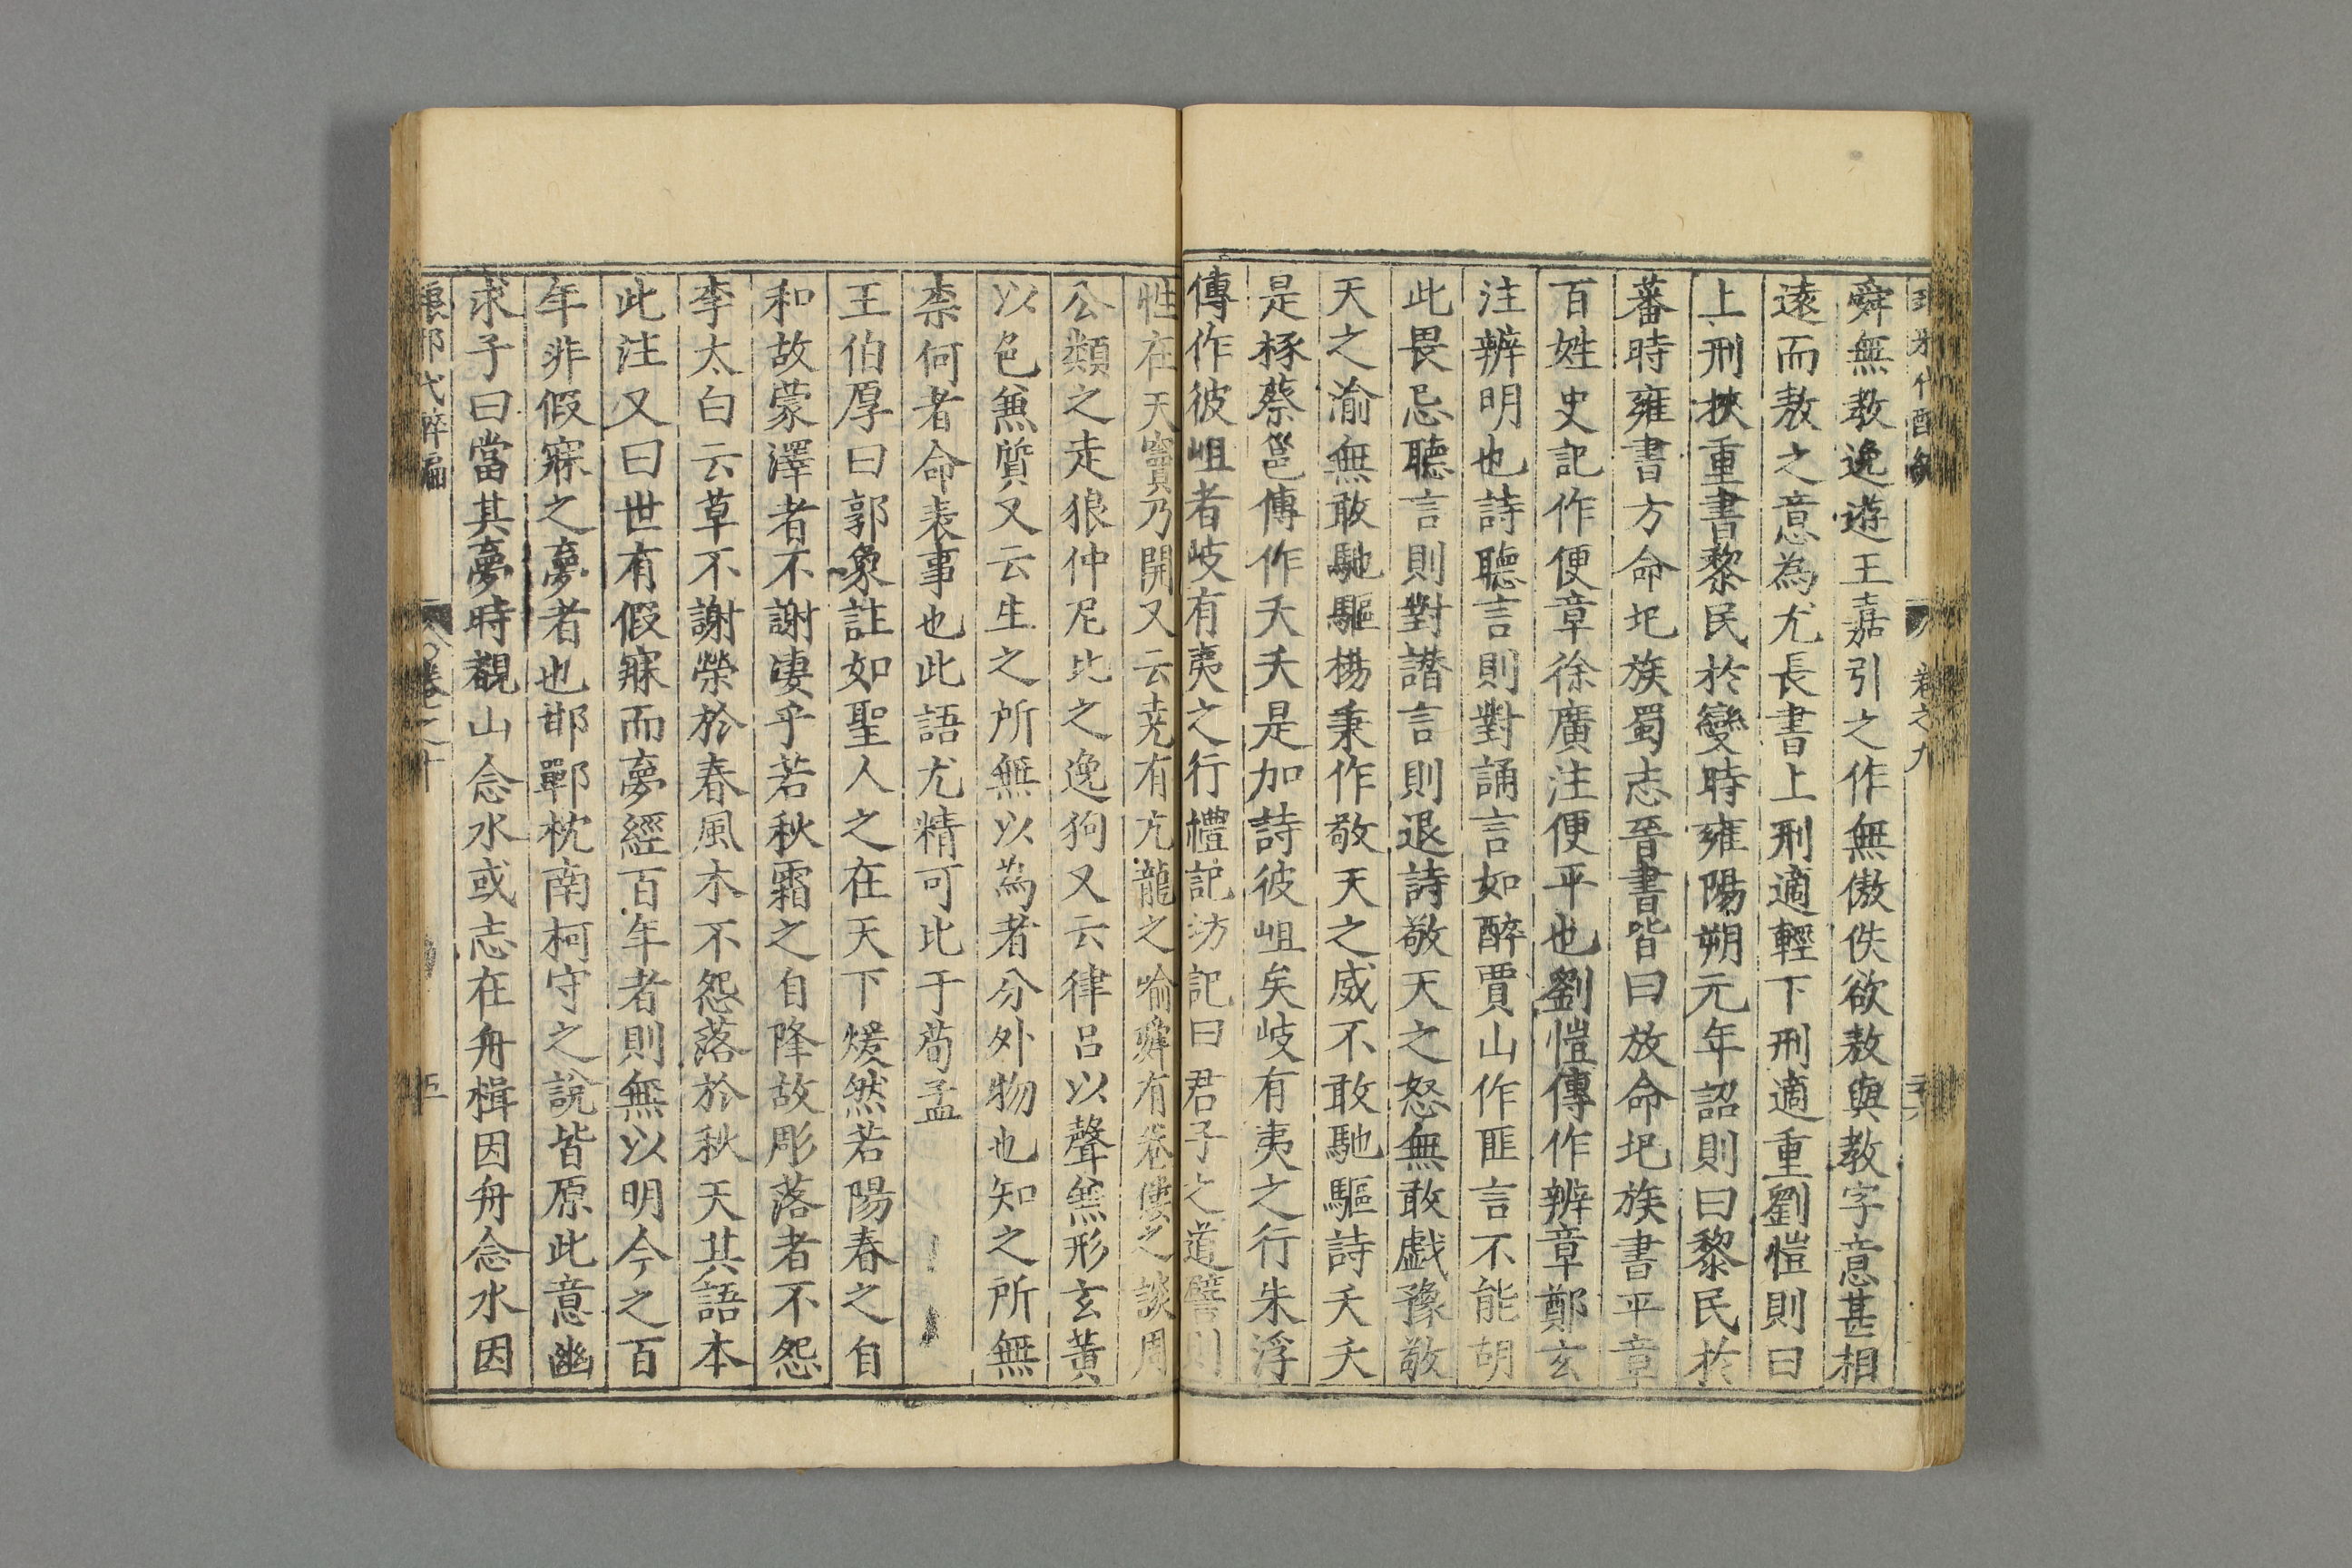 卷之九
舜無教逸遊王嘉引之作無傲佚欲敖與教字意甚相
遠而敖之意為尤長書上刑適輕下刑適重劉愷則曰
上刑挾重書黎民於變時雍陽朔元年詔則曰黎民於
蕃時雍書方命圮族蜀志晉書皆曰放命圮族書平章
百姓史記作便章徐廣注便平也劉愷傳作辨章鄭玄
注辨明也詩聽言則對誦言如醉賈山作匪言不能胡
此畏忌聽言則對譖言則退詩敬天之怒無敢戯豫敬
天之渝無敢馳驅楊秉作敬天之威不敢馳驅詩夭夭
是椓蔡邕傳作夭夭是加詩彼岨矣岐有夷之行朱浮
傳作彼岨者岐有夷之行禮記坊記曰君子之道譬則
性在天竇乃開又云尭有亢龍之喻舜有卷僂之談周
公類之走狼仲尼比之逸狗又云律呂以聲兼形玄黃
以色兼質又云生之所無以為者分外物也知之所無
柰何者命表事也此語尤精可比于荀孟
王伯厚曰郭象註如聖人之在天下煖然若陽春之自
和故蒙澤者不謝凄乎若秋霜之自降故彫落者不怨
李太白云草不謝榮於春風木不怨落於秋天其語本
此注又曰世有假寐而夢經百年者則無以明今之百
年非假寐之夢者也邯鄲枕南柯守之說皆原此意幽
求子曰當其夢時覩山念水或志在舟楫因舟念水因
琅邪代醉編 卷之十 五